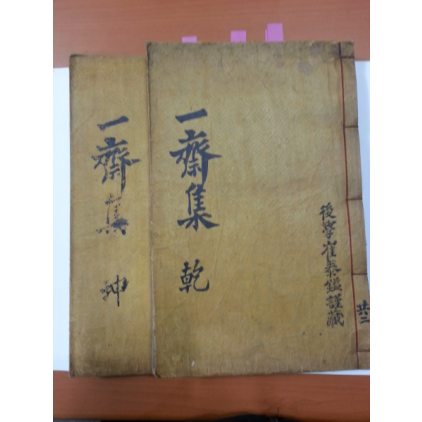 一齋集 乾
後學崔泰鎰謹藏
共二
一齋集 坤